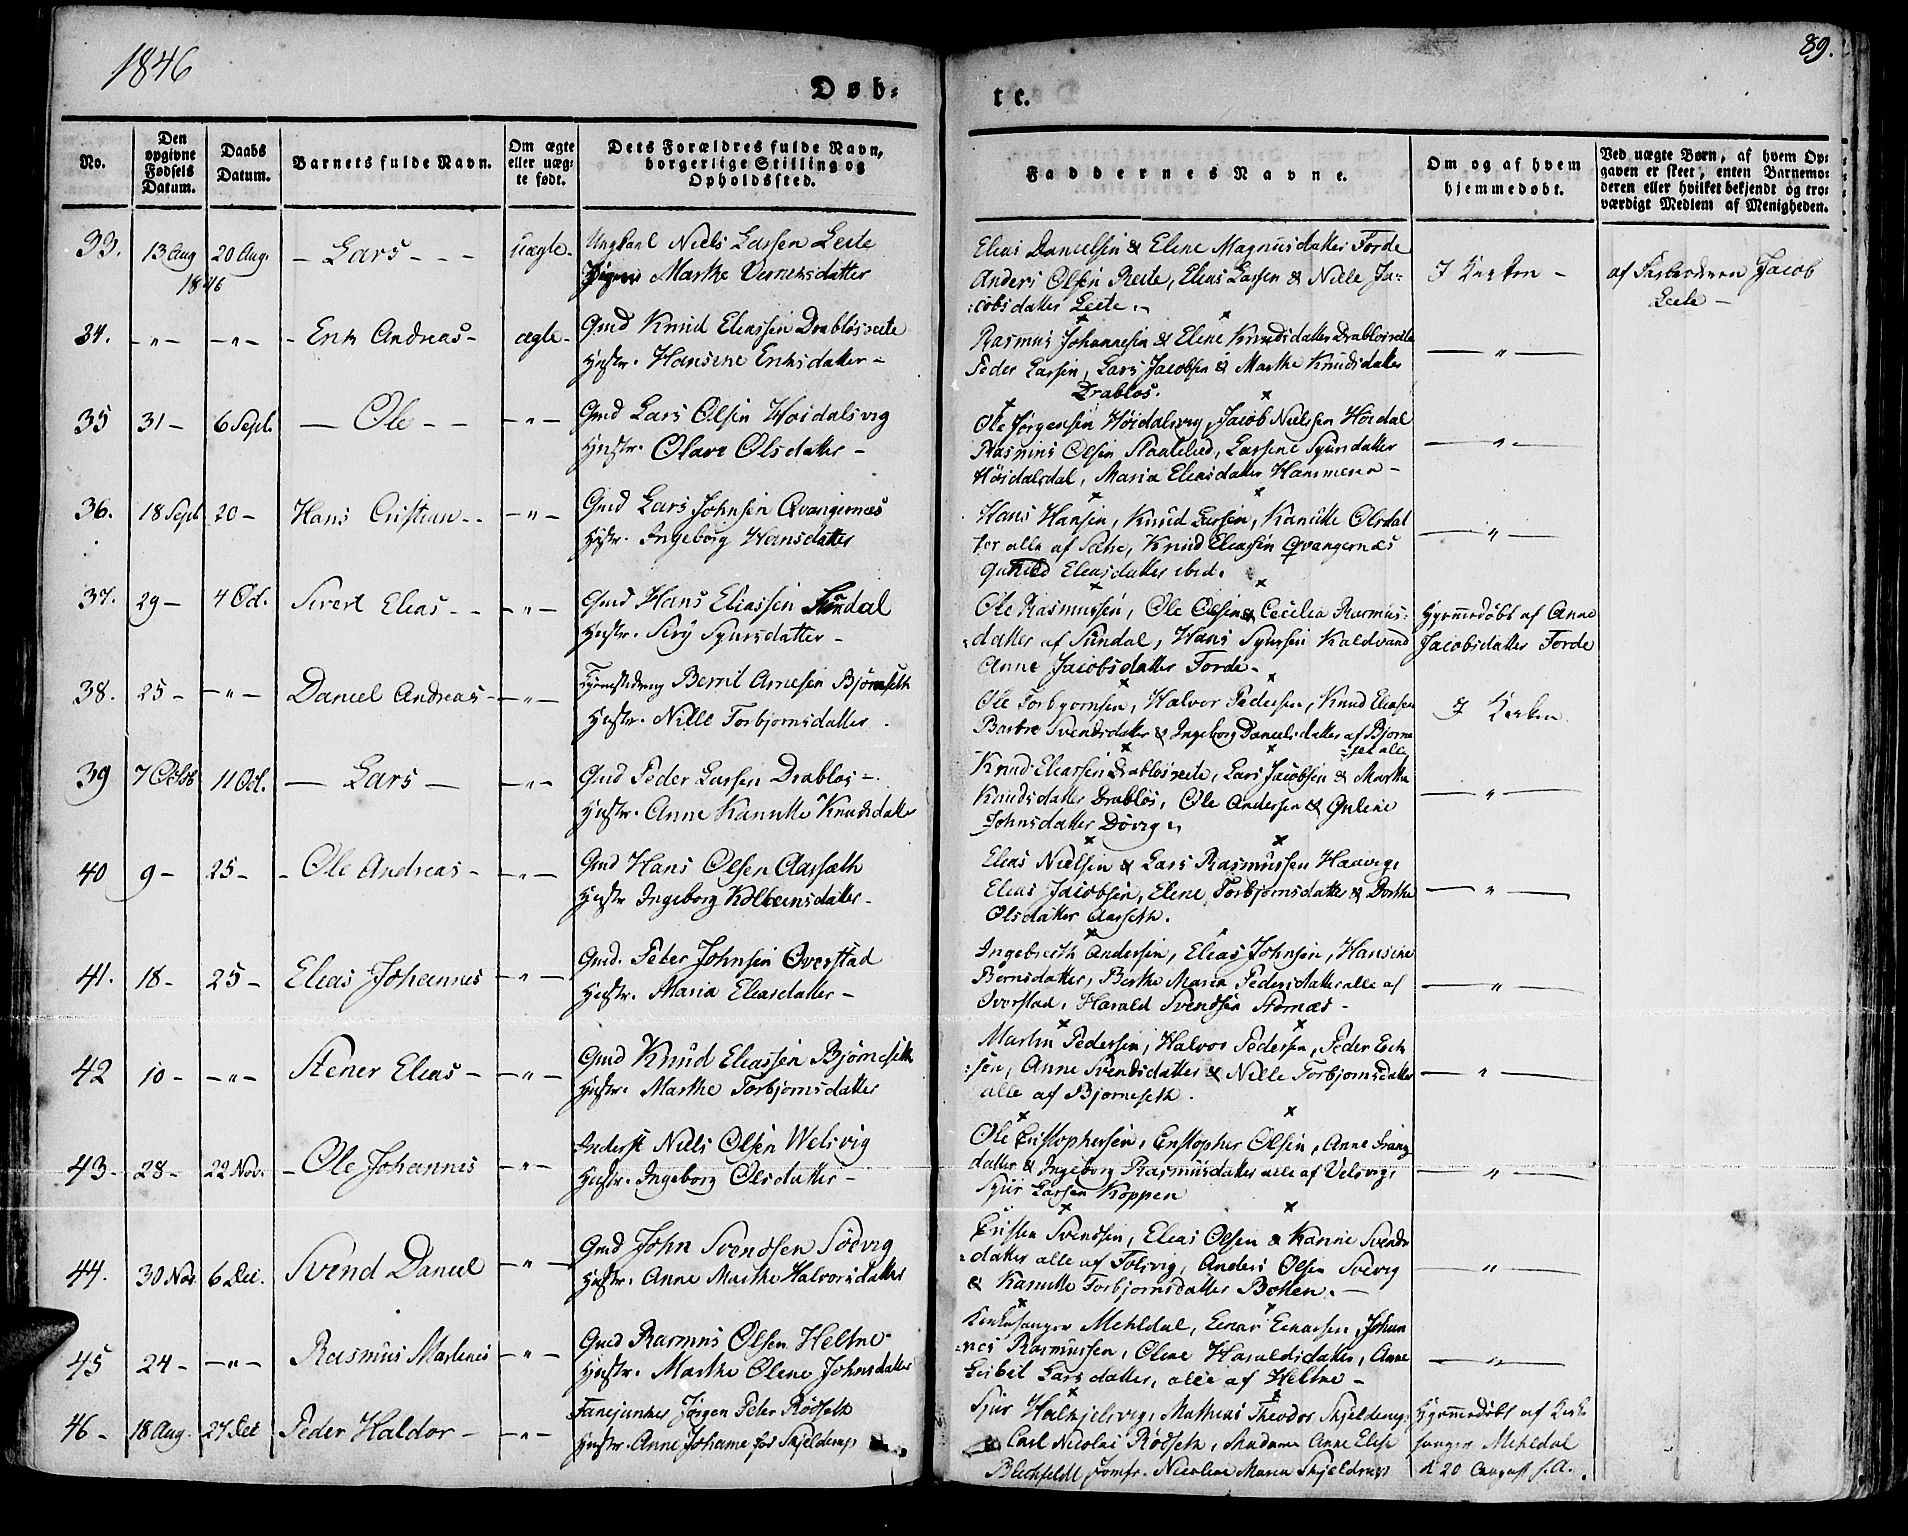 1846
89.
Døb=
te.
No.
Den opgivne Fødsels Datum.
Daabs Datum.
Barnets fulde Navn.
Om ægte eller uæg= te født.
Dets Forældres fulde Navn, borgerlige Stilling og Opholdssted.
Faddernes Navne.
Om og af hvem hjemmedøbt.
Ved uægte Børn, af hvem Op= gaven er skeet, enten Barnemo= deren eller hvilket bekjendt og tro= værdigt Medlem af Menigheden.
33. 13 Aug 20 Aug. - Lars - - - uægte. Ungkarl Niels Larsen Leite
1846
Pigen Marthe Vernersdatter
Elias Danielsen & Elene Magnusdatter Förde
Anders Olsen Reite, Elias Larsen & Nille Ja=
:cobsdatter Leite.
I Kirken -
af Jacob
Leite -
34. -"- -"- - Erik Andreas - ægte - Gmd Knud Eliassen Drabløsreite
Hustr. Hansine Eriksdatter -
Rasmus Johannesen & Elene Knudsdatter Drabløsreite
Peder Larsen, Lars Jacobsen & Marthe Knudsdatter
Drabløs.
—"—
35 31 - 6 Sept. — Ole - - -"- Gmd Lars Olsen Høidalsvig
Hustr. Olave Olsdatter -
Ole Jørgensen Höidalsvig, Jacob Nielsen Höidal
Rasmus Olsen Staaleied, Larsine Syversdatter
Höidalsdal, Maria Eliasdatter Hammeren -
—"—
36. 18 Sept 20 - Hans Cristian - - -"- Gmd Lars Johnsen Qvangernæs
Hustr. Ingeborg Hansdatter
Hans Hansen, Knud Larsen, Kanutte Olsdat
ter alle af Sætre, Knud Eliassen Qvangernæs
Gunild Eliasdatter ibid.
—"—
37. 29 - 4 Oct. Sivert Elias - - -"- Gmd Hans Eliassen Sundal
Hustr. Siri Syversdatter -
Ole Rasmussen, Ole Olsen & Cecilia Rasmus:
:datter af Sundal, Hans Syversen Kaldvand
Anne Jacobsdatter Förde -
Hjemmedöbt af Anne
Jacobsdatter Förde
38. 25 - -"- Daniel Andreas - -"- Bernt Arnesen Bjørneseth
Hustr. Nille Torbjørnsdatter
Ole Torbjørnsen, Halvor Pedersen, Knud Eliassen
Barbro Svendsdatter & Ingeborg Danielsdatter af Bjørne
:set alle
I Kirken
39 7 Octob 11 Oct. — Lars — -"- Gmd Peder Larsen Drabløs -
Hustr. Anne Kanutte Knudsdatter
Knud Eliassen Drabløsreite, Lars Jacobsen & Marthe
Knudsdatter Drabløs, Ole Andersen & Guline
Johnsdatter Dövig
—"—
40 9 - 25 - - Ole Andreas - -"- Gmd Hans Olsen Aarseth
Hustr Ingeborg Kolbeinsdatter -
Elias Nielsen & Lars Rasmussen Haavig,
Elias Jacobsen, Elene Torbjørnsdatter & Dorthe
Olsdatter Aarseth.
—"—
41. 18 - 25 - Elias Johannes -"- Gmd. Peter Johnsen Overstad
Hustr. Maria Eliasdatter -
Ingebreth Andersen, Elias Johnsen, Hansine
Berntsdatter, Berthe Maria Pedersdatter alle af
Overstad, Harald Svendsen Stornæs -
—"—
42 10 - -"- Stener Elias - -"- Gmd Knud Eliassen Bjørneseth
Hustr. Marthe Torbjørnsdatter
Martin Pedersen, Halvor Pedersen, Peder Erik
:sen, Anne Svendsdatter & Nille Torbjørnsdatter
alle af Bjørneseth.
—"—
43 - 28 - 22 Nov. - Ole Johannes -"- Inderst Niels Olsen Welsvig
Hustr. Ingeborg Olsdatter -
Ole Cristophersen, Cristopher Olsen, Anne
datter & Ingeborg Rasmusdatter alle af Velsvig,
Sjur Larsen Koppen
—"—
44. 30 Nov 6 Dec. Svend Daniel -"- Gmd John Svendsen Södvig
Hustr. Anne Marthe Halvorsdatter
Cristen Svendsen, Elias Olsen & Karine Svends
:datter alle af Fölsvig, Anders Olsen Solvig
& Kanutte Torbjørnsdatter Botten. —
—"—
45 24 - -"- Rasmus Martines -"- Gmd Rasmus Olsen Heltne
Hustr. Marthe Olene Johnsdatter
Kirkesanger Mehldal, Einar Einarsen, Johan
:nes Rasmussen, Oline Haraldsdatter, Anne
Lisbet Larsdatter, alle af Heltne -
—"—
46 - 18 Aug. 27 Dec Peder Haldor - -"- Fanejunker Jörgen Peter Rödseth
Hustr. Anne Johanne fød Skjelderup
Sjur Halkjelsvig, Mathias Theodor Skjelderup,
Carl Nicolai Rödseth, Madame Anne Elise
Blechfeldt Jomfr. Nicoline Maria Skjeldrup
Hjemmedöbt af Kirke
sanger Mehldal
d 20 August s. A.